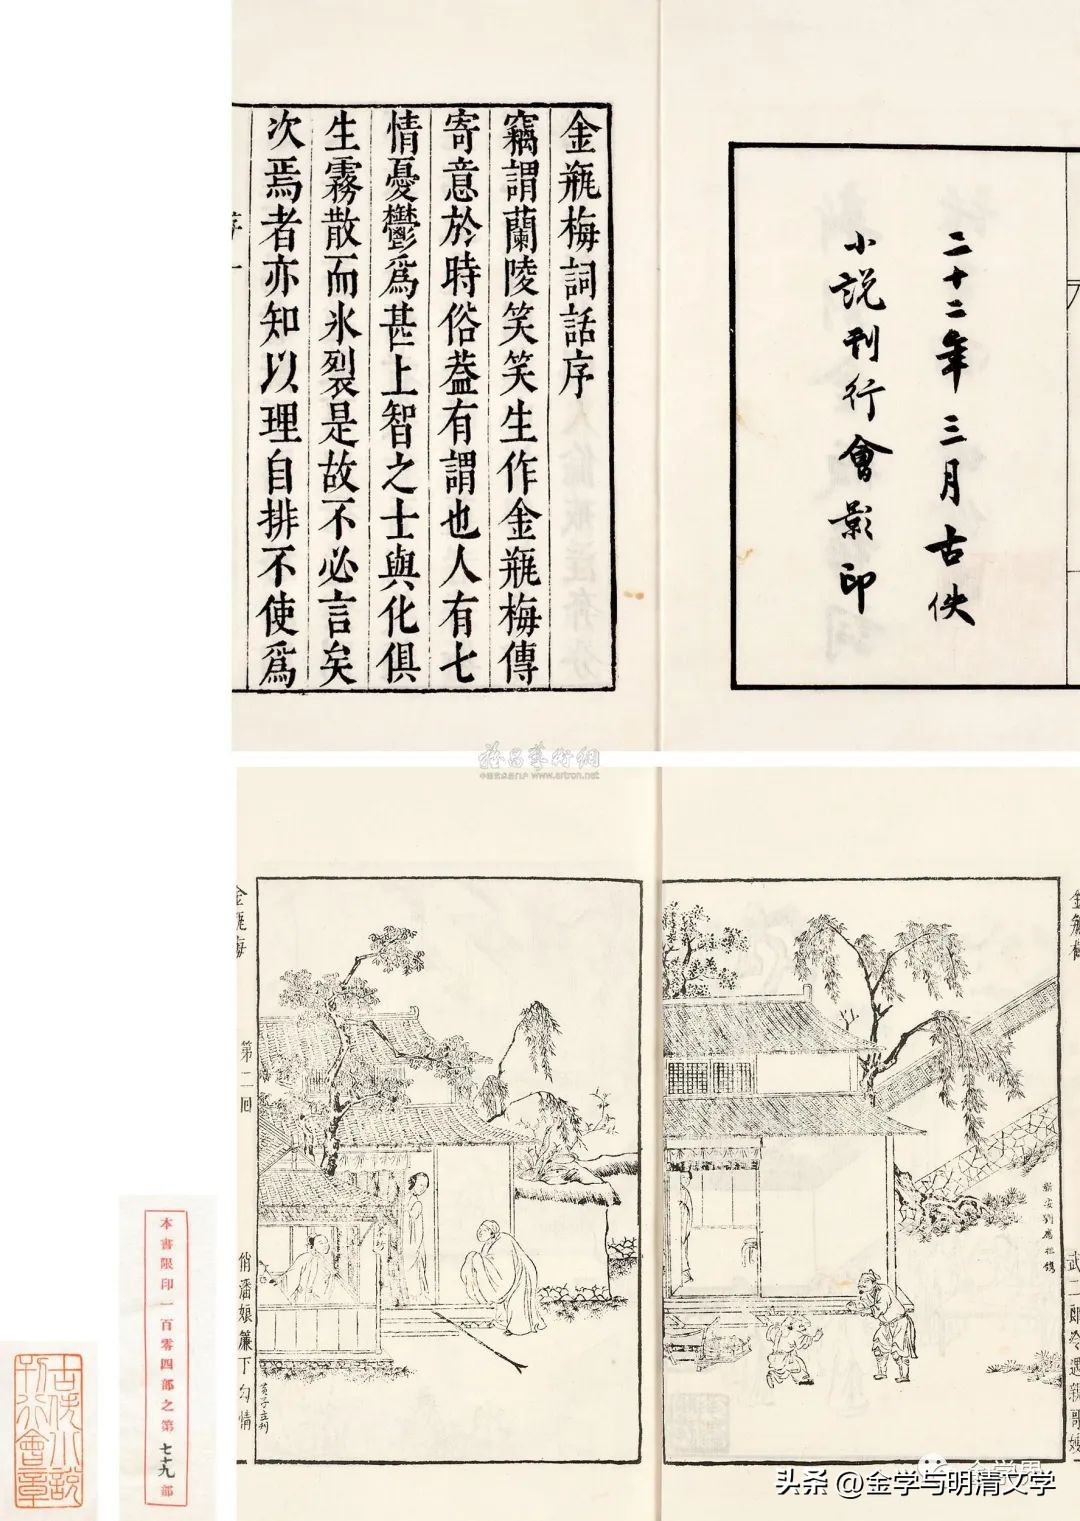 二十二年三月古佚
小説刊行會影印
金瓶梅詞話序
竊謂蘭陵笑笑生作金瓶梅傳
寄意於時俗葢有謂也人有七
情憂鬱爲甚上智之士與化俱
生霧散而氷裂是故不必言矣
次焉者亦知以理自排不使爲
序
一
雅昌藝術網
中国艺术品门户 www.artron.net
金瓶梅
新安劉應祖鐫
武二郎冷遇親哥嫂
金瓶梅
第二回
俏潘娘簾下勾情
黃子立刊
本書限印一百零四部之第七十九部
古佚小説
刊行會章
头条 @金学与明清文学